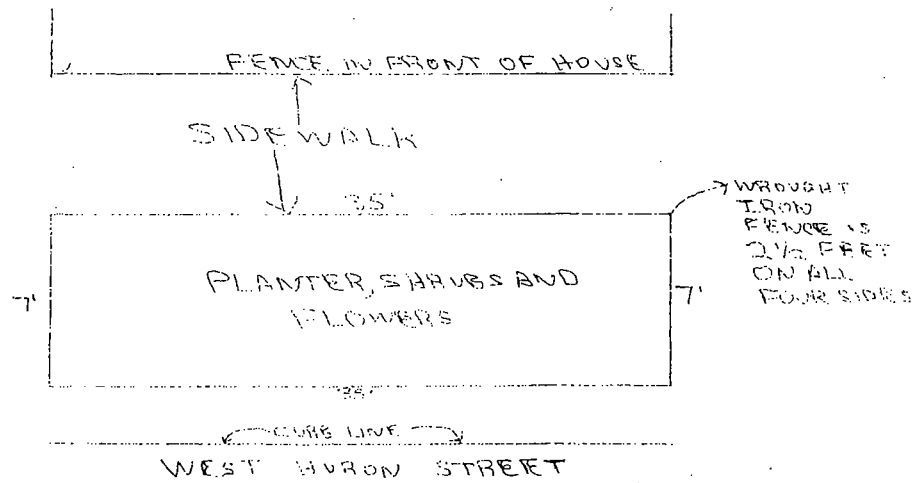 FENCE IN FRONT OF HOUSE
SIDEWALK
35'
WROUGHT
IRON
FENCE IS
2 1/2 FEET
ON ALL
FOUR SIDES
PLANTER, SHRUBS AND
FLOWERS
7'
7'
35'
CURB LINE
WEST HURON STREET